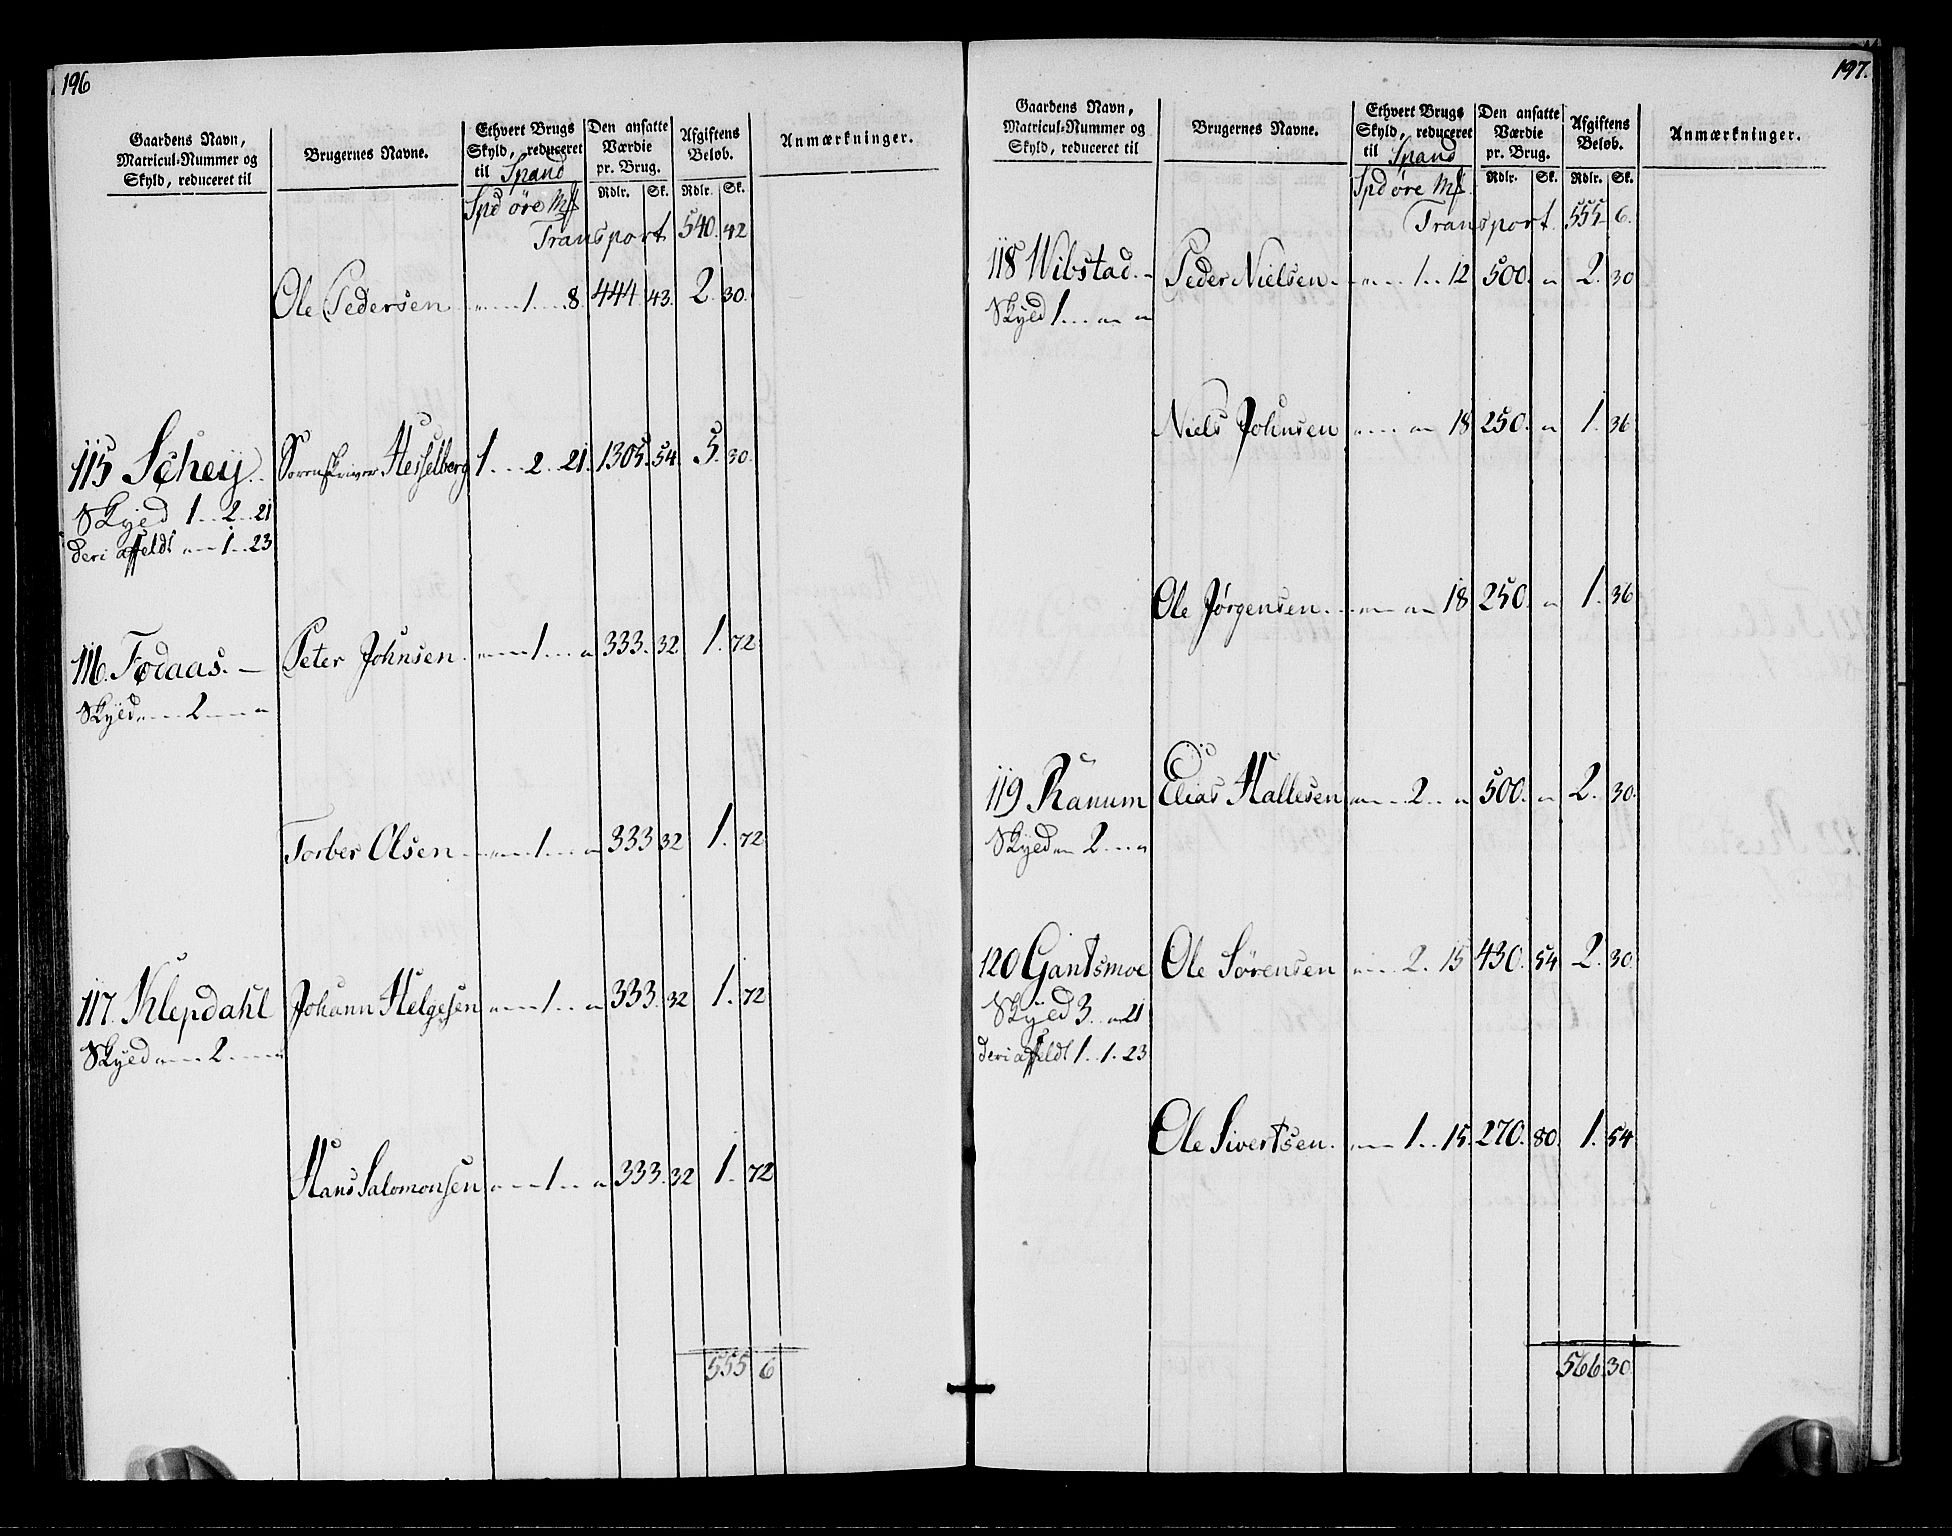 196
Gaardens Navn,
Matricul-Nummer og
Skyld, reduceret til
Brugernes Navne.
Ethvert Brugs
Skyld, reduceret
til Spand
Den ansatte
Værdie
pr. Brug.
Afgiftens
Beløb.
Anmærkninger.
Spd øre
Rdlr. Sk. Rdlr. Sk.
Transport 540. 42
Ole Pedersen 1 8. 444 43. 2. 30.
115 Schey. Sorenskriver Hesselberg 1 2 21. 1305. 54 5. 30.
Skyld 1 2 21
deri affældt 1 23
116. Fodaas. Peter Johnsen 1 333. 32 1. 72
Skyld 2
Torber Olsen 1 333 32 1. 72
117. Klepdahl Johann Helgesen 1 333. 32 1. 72
Skyld 2
Hans Salomonsen 1 333. 32 1. 72
555 6
197.
Gaardens Navn,
Matricul-Nummer og
Skyld, reduceret til
Brugernes Navne.
Ethvert Brugs
Skyld, reduceret
til Spand
Den ansatte
Værdie
pr. Brug.
Afgiftens
Beløb.
Anmærkninger.
Spd øre
Rdlr. Sk. Rdlr. Sk.
Transport. 555 6.
118 Wibstad. Peder Nielsen. 1 12 500. 2. 30
Skyld 1
Niels Johnsen 18 250. 1. 36
Ole Jørgensen. 18 250. 1. 36
119 Ranum Elias Hallesen 2 500. 2. 30.
Skyld 2
120 Gantsmoe Ole Sörensen 2. 15 430. 54 2. 30
Skyld 3 21
deri affældt 1 1. 23
Ole Sivertsen. 1 15. 270. 80. 1. 54
566. 30